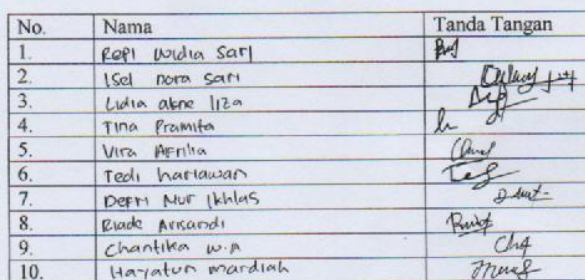 No. Nama Tanda Tangan
1. Repi Widia Sari
2. Isel nora sari
3. Lidia akne liza
4. Tina Pramita
5. Vira Afrilia
6. Tedi hariawan
7. Defri Nur Ikhlas
8. Riade Arisandi
9. Chantika W.A
10. Hayatun mardiah